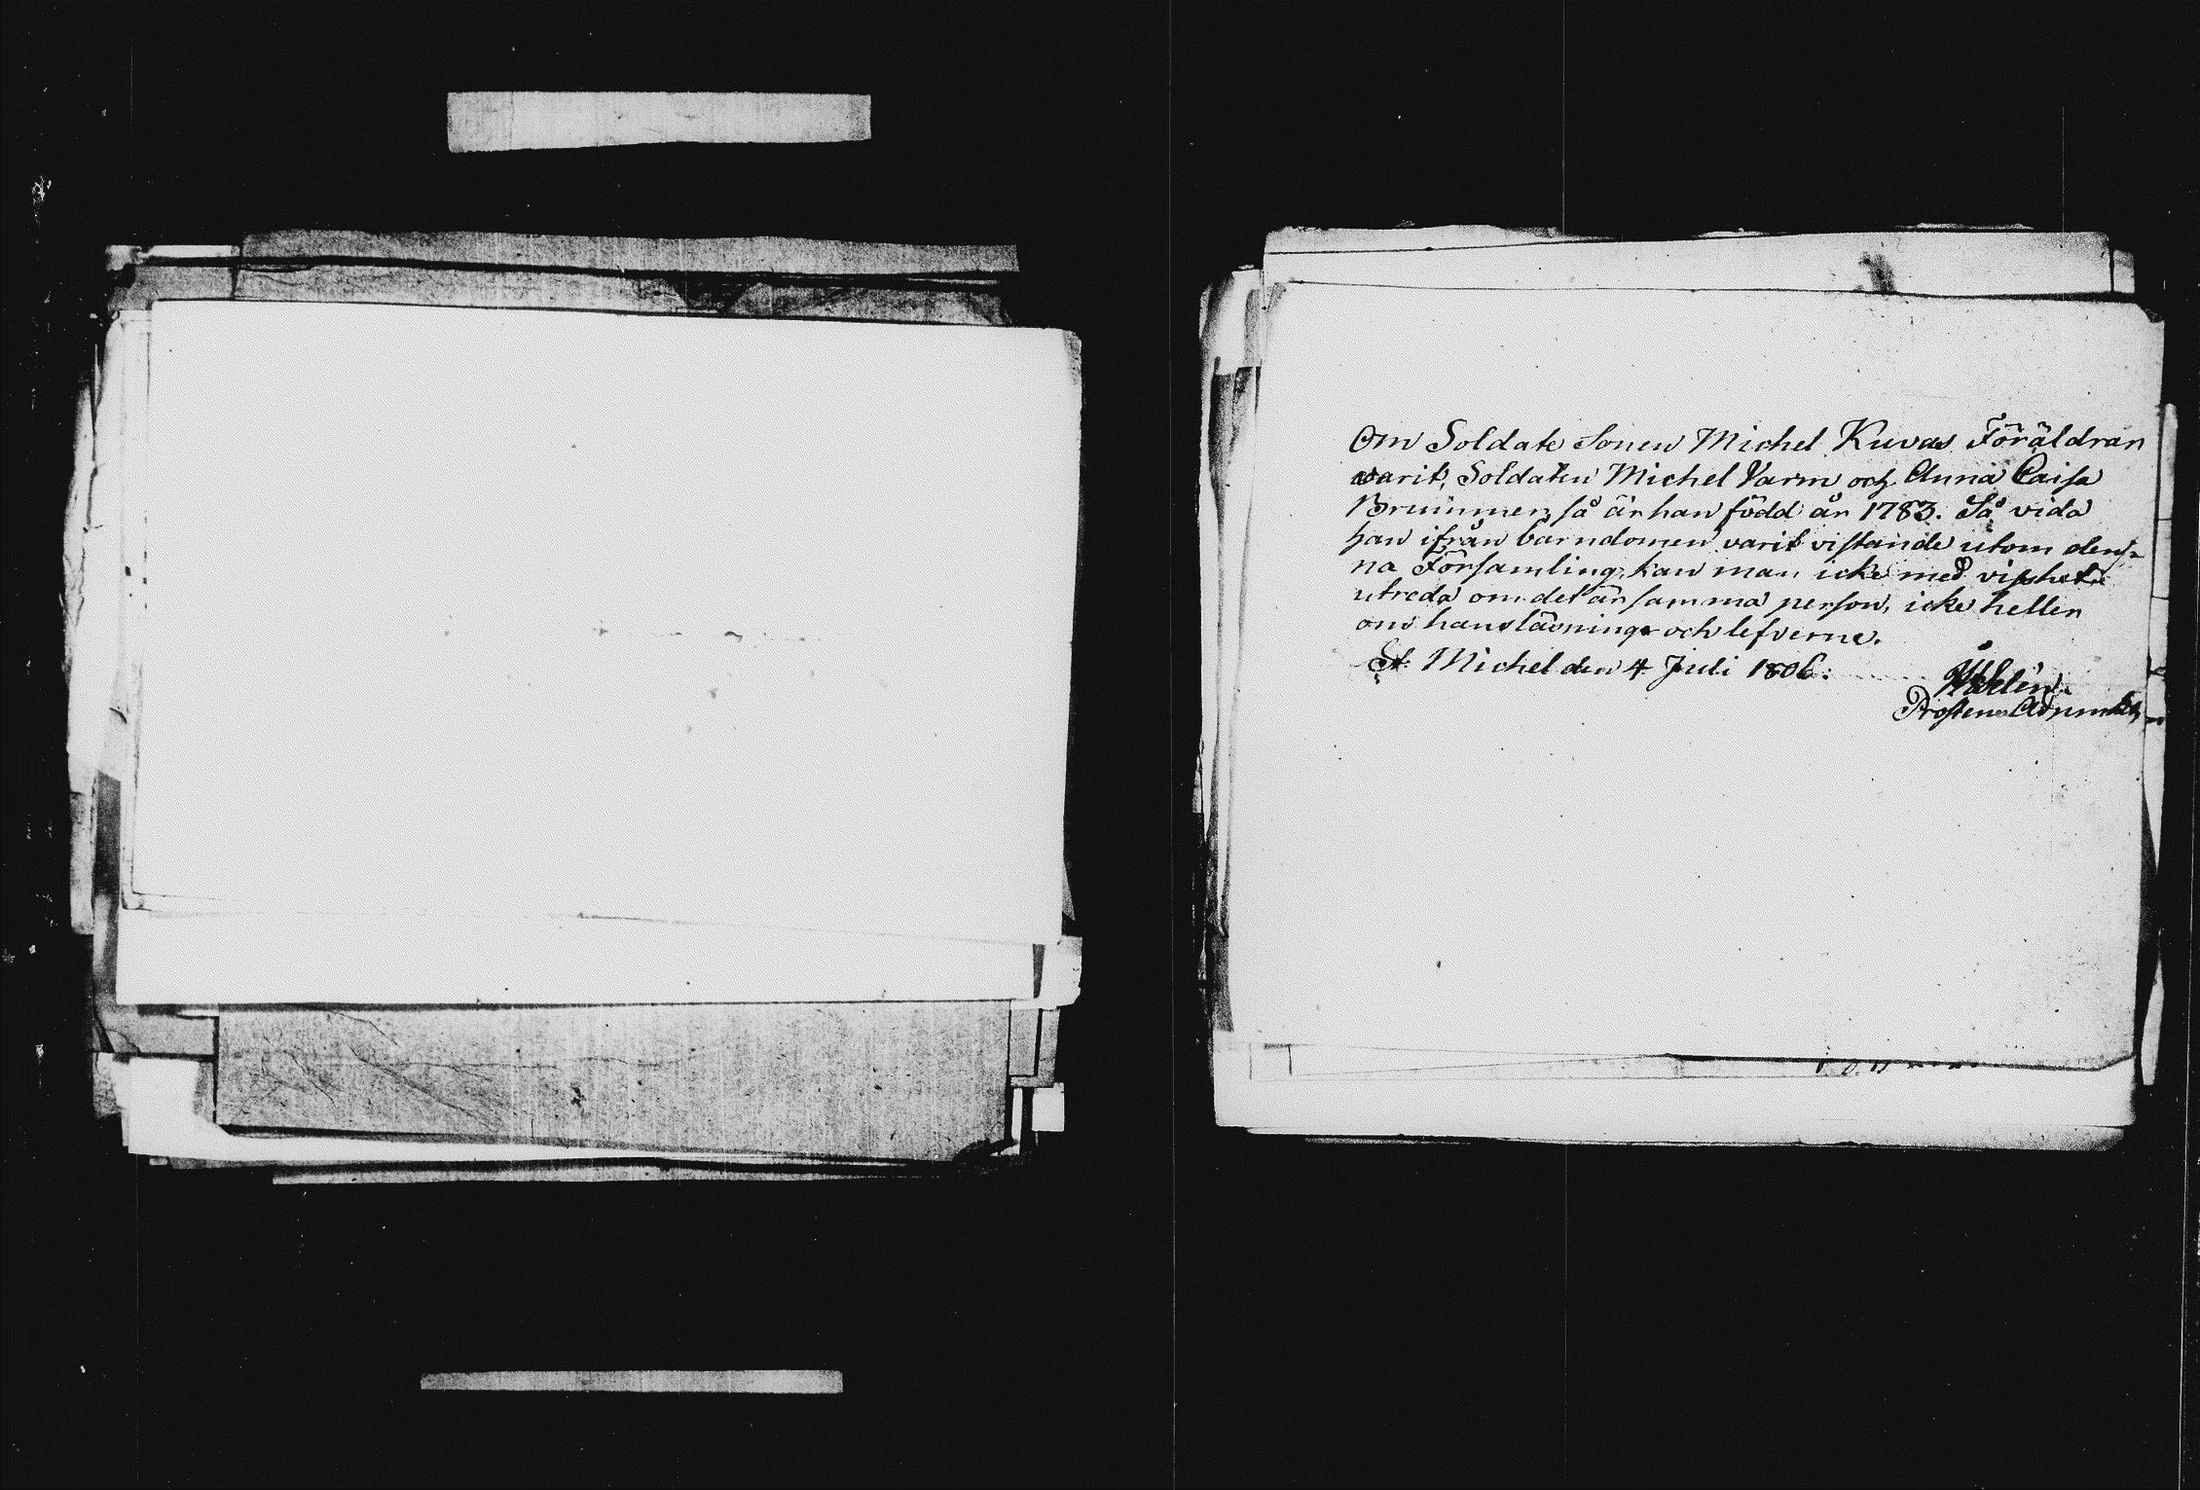 Om Soldate Sonen Michel Kuvas Föräldrar
varit, Soldaten Michel Varm och Anna Caisa
Brummer, så är han född år 1783. Så vida
han ifrån barndomen varit vistande utom den¬
na Församling, kan man icke med visshet
utreda om det är samma person, icke heller
om hans läsning och lefverne.
St Michel den 4 Juli 1806.
Prostens Adjunct